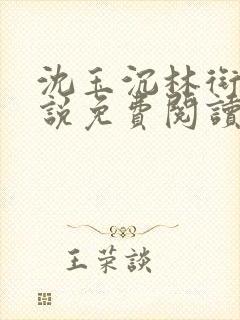 沈玉沉林衍
說免費閱讀
王荣談